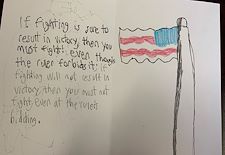 If fighting is sure to
result in victory, then you
must fight! even though
the ruler forbids it; if
fighting will not result in
victory, then you must not
fight, even at the ruler's
bidding.